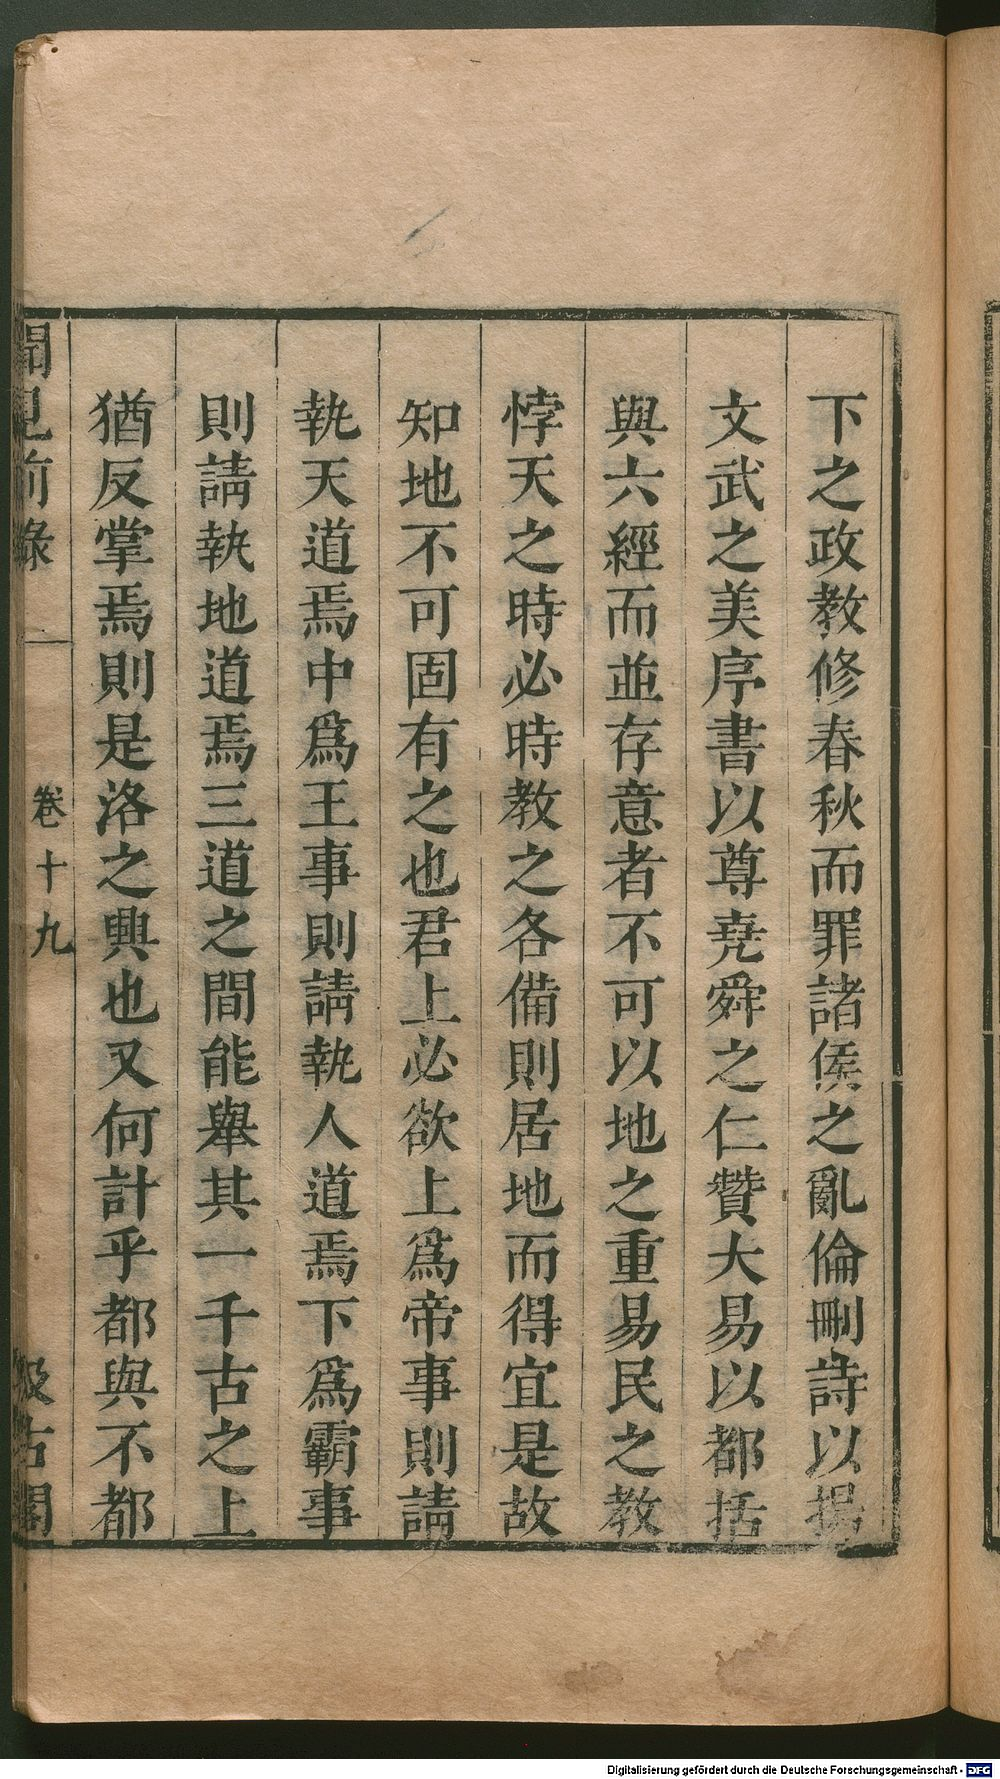 下之政教修春秋而罪諸侯之亂倫刪詩以揚
文武之美序書以尊堯舜之仁贊大易以都括
與六經而並存意者不可以地之重易民之教
悖天之時必時教之各備則居地而得宜是故
知地不可固有之也君上必欲上爲帝事則請
執天道焉中爲王事則請執人道焉下爲霸事
則請執地道焉三道之間能舉其一千古之上
猶反掌焉則是洛之興也又何計乎都與不都
聞見前錄
卷十九
汲古閣
Digitalisierung gefördert durch die Deutsche Forschungsgemeinschaft - DFG